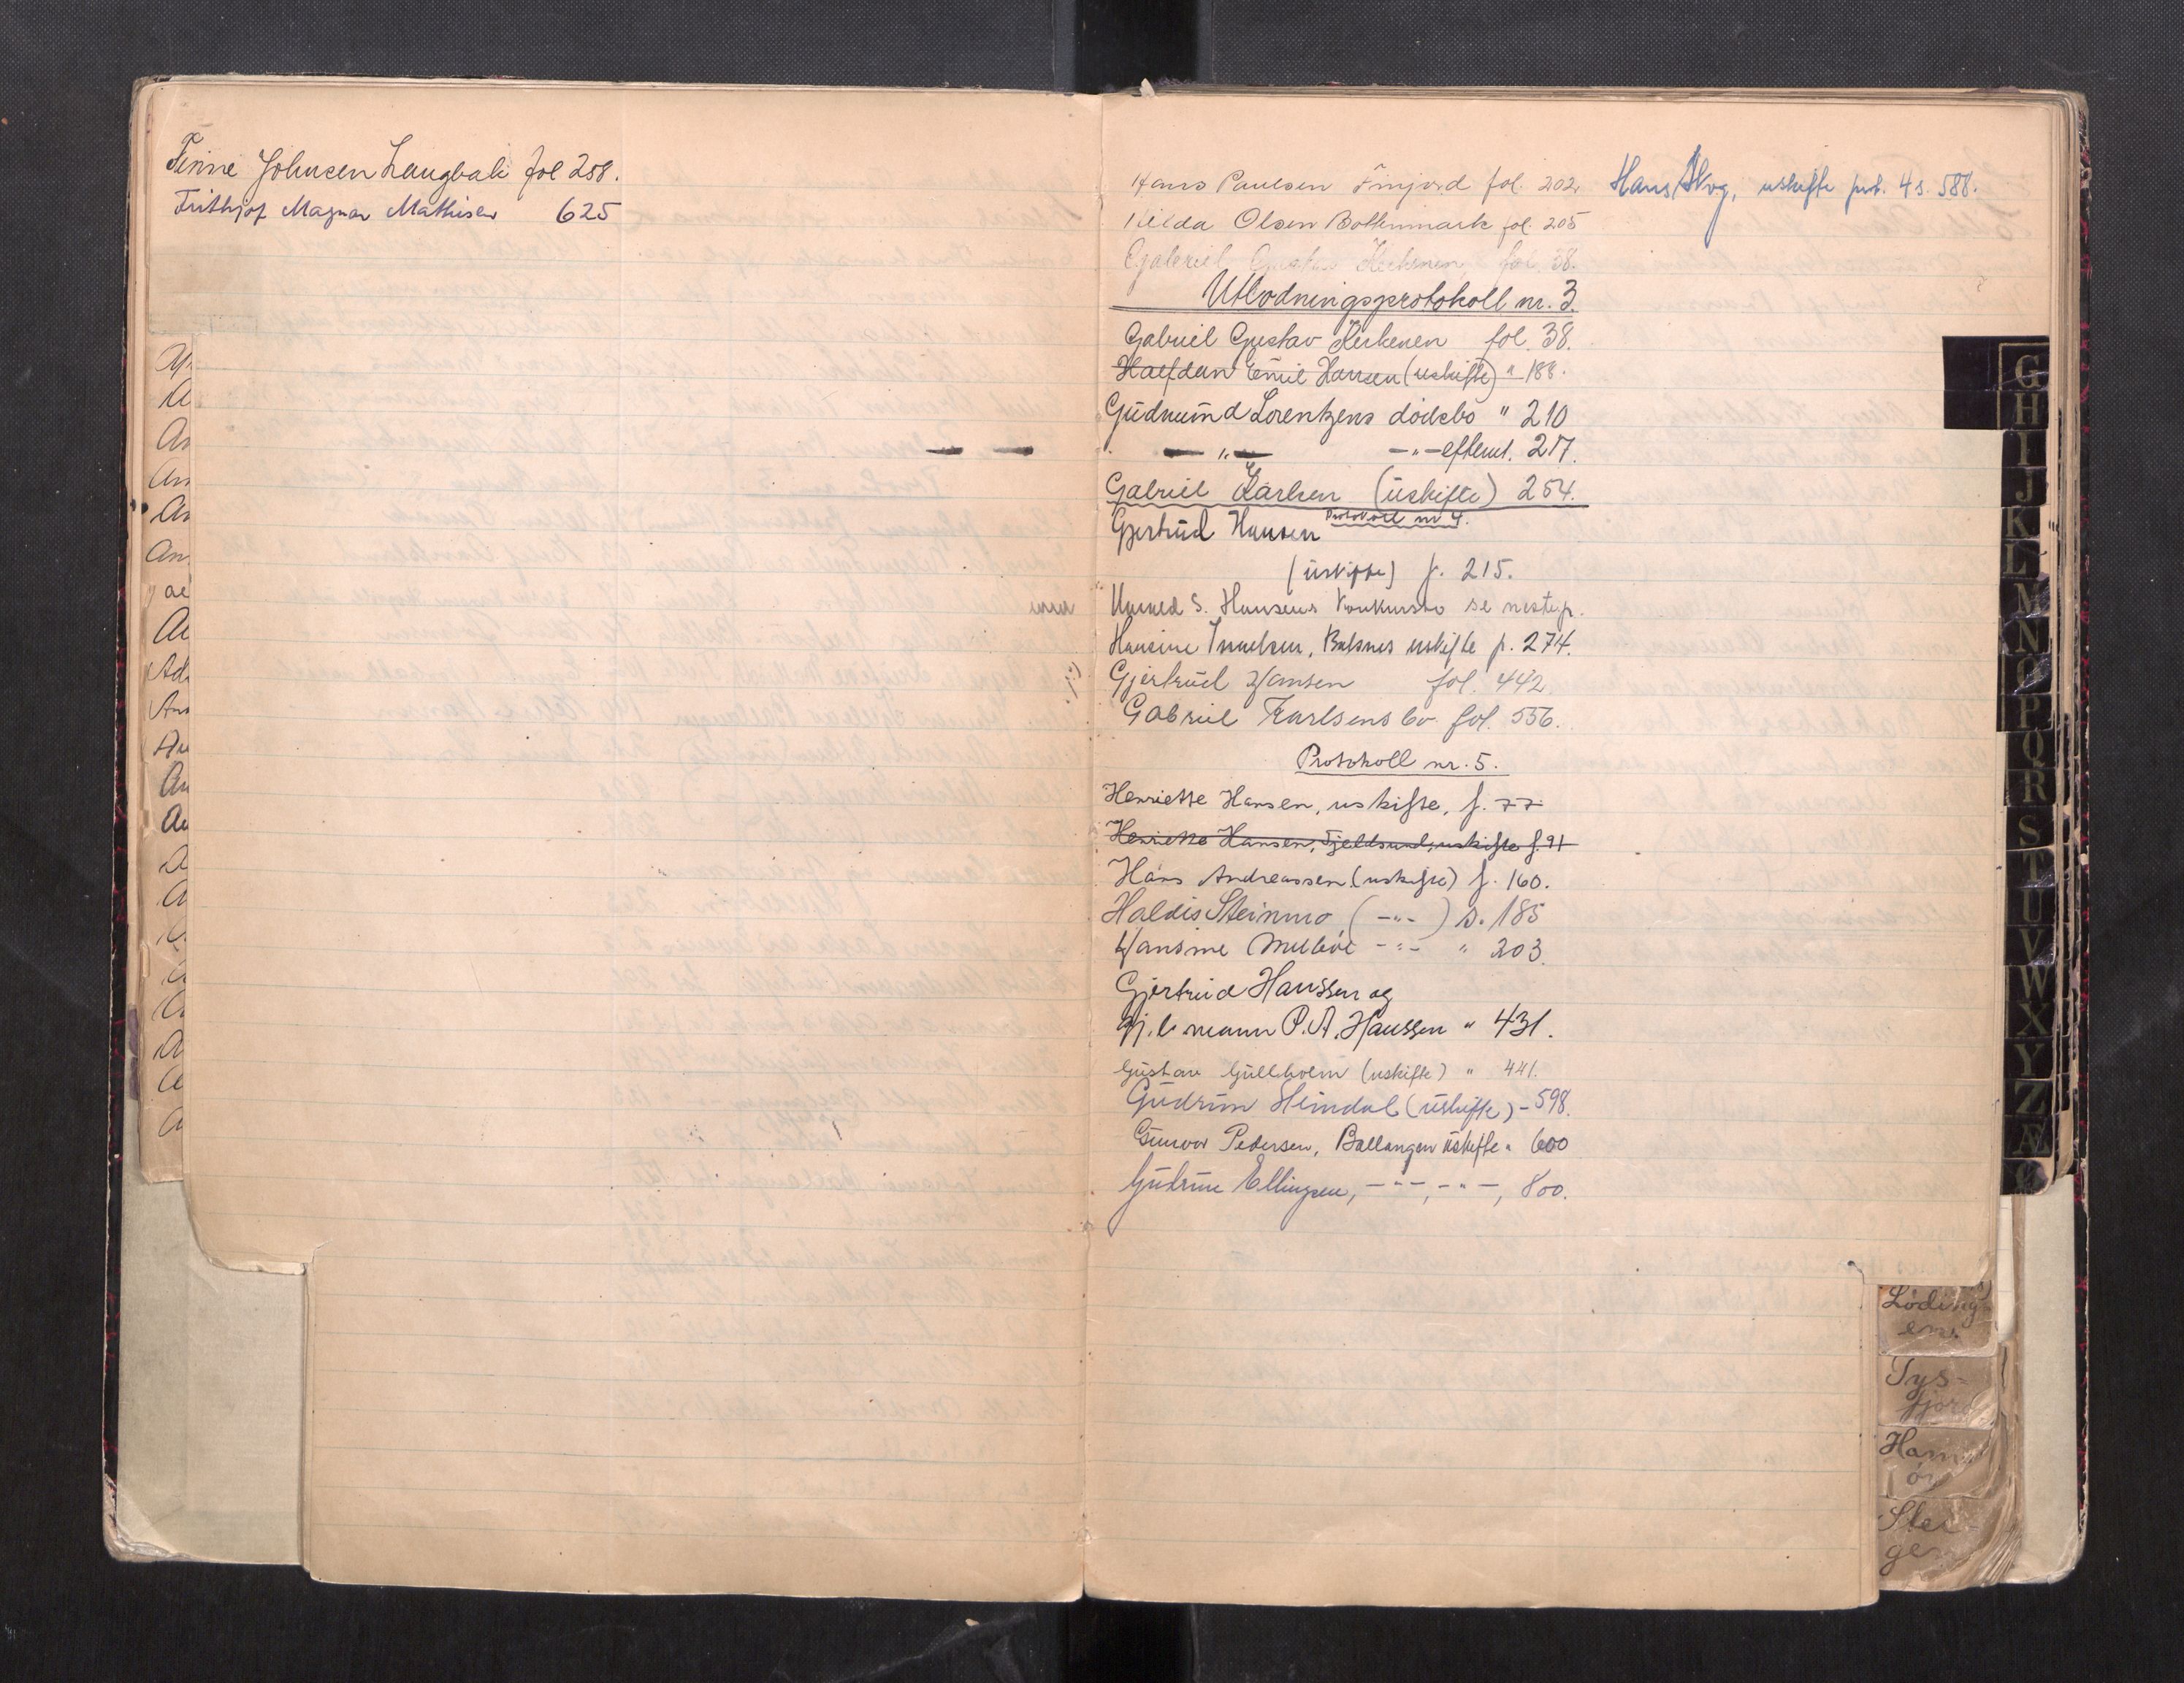 Finne Johnsen Langbak fol 258.
Frithjof Magnar Mathisen 625
Hans Paulsen Finjord fol. 202.
Hilda Olsen Bottenmark fol. 205
Gabriel Gustav Kerkenen, fol. 38.
Utlodningsprotokoll nr. 3.
Gabriel Gustav Kerkenen fol. 38.
Halfdan Emil Hansen (uskifte) " 188.
Gudmund Lorentzens dödsbo " 210
— " — — " — efterut. 217.
Gabriel Karlsen (uskifte) 254.
Protokoll nr 4.
Gjertrud Hansen
(uskifte) f. 215.
S. Hansens konkursbo se neste p.
Hansine Israelsen, Balsnes uskifte p. 274.
Gjertrud Hansen fol. 442.
Gabriel Karlsens bo fol. 556.
Protokoll nr. 5.
Henriette Hansen, uskifte, f. 77
Henriette Hansen, Fjeldsund, uskifte f. 91
Hans Andreassen (uskifte) f. 160.
Haldis Steinmo ( - " - ) s. 185
Hansine Melböe - " - " 203.
Gjertrud Hanssen og
gj.l. mann P. A. Hanssen " 431.
Gustav Gullholm (uskifte) " 441.
Gudrun Heimdal (uskifte) - 598.
Gunvor Pedersen, Ballangen uskifte " 600
Gudrun Ellingsen, — " —, — " —, 800.
Hans Skog, uskifte prt. 4 s. 588.
G
H
I
J
K
L
M
N
O
P
Q
R
S
T
U
V
W
X
Y
Z
Æ
Ø
Lödingen
Tysfjord
Hamaröy
Steigen